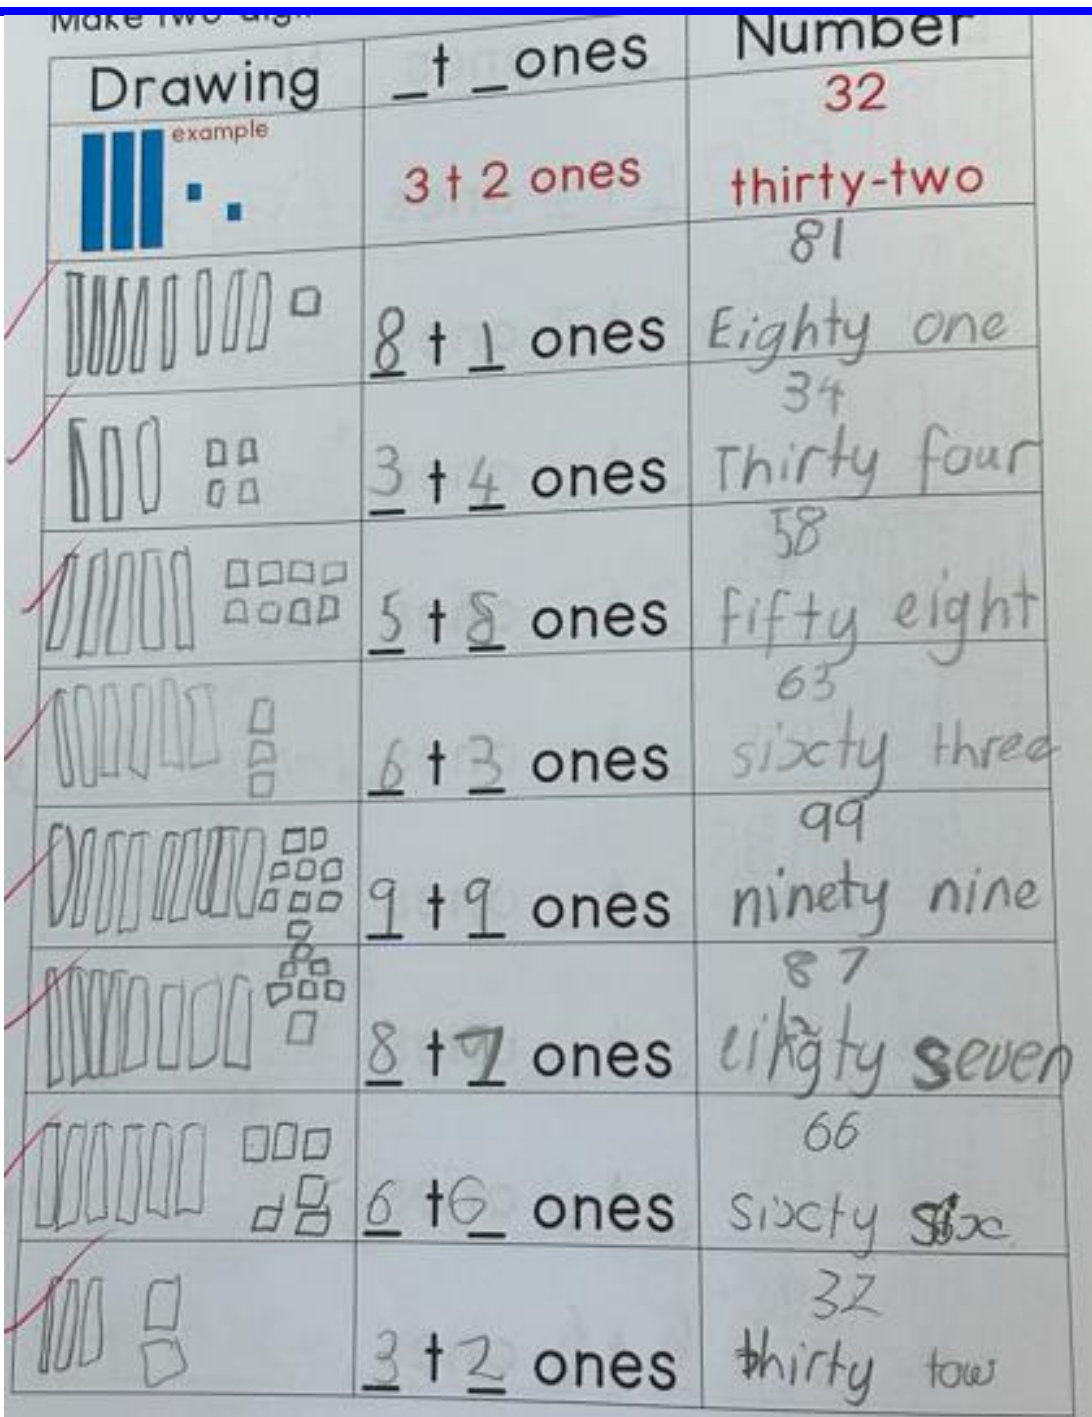 Make two digi
Drawing _t _ ones Number
example 3 t 2 ones 32
thirty-two
8 t 1 ones 81
Eighty one
3 t 4 ones 34
Thirty four
5 t 8 ones 58
fifty eight
6 t 3 ones 63
sixty three
9 t 9 ones 99
ninety nine
8 t 7 ones 87
seven
6 t 6 ones 66
sixty six
3 t 2 ones 32
thirty tow